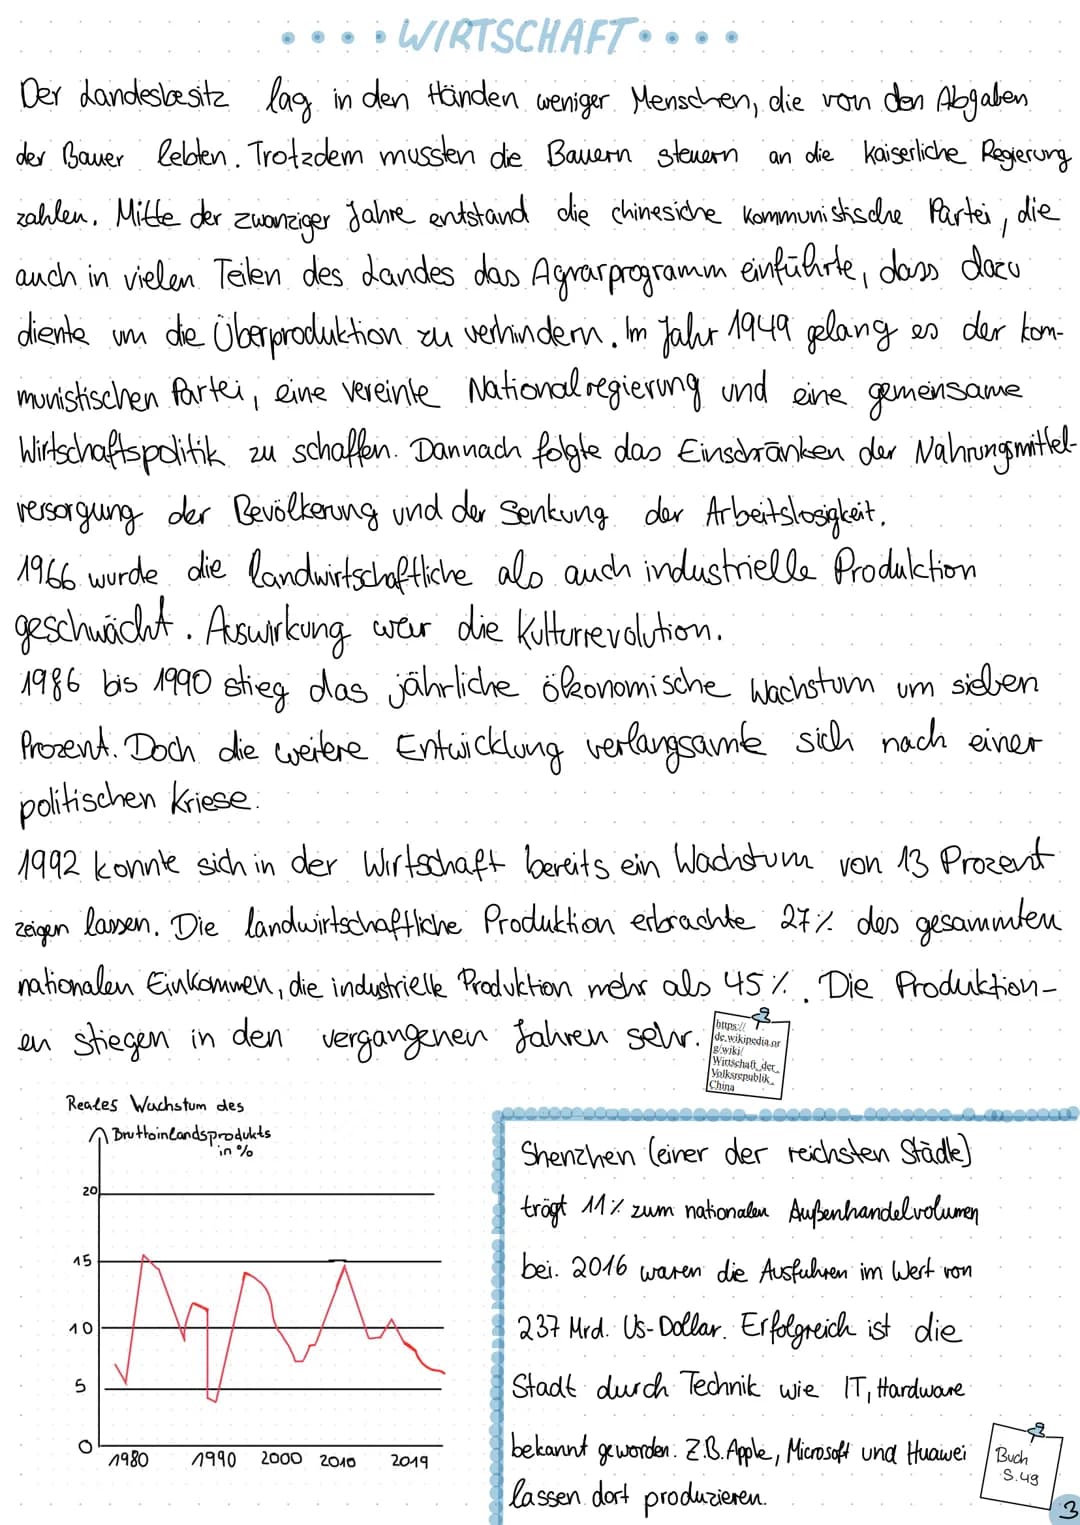 WIRTSCHAFT
Der Landesbesitz lag in den Händen weniger Menschen, die von den Abgaben
der Bauer lebten. Trotzdem mussten die Bauern steuern an die Kaiserliche Regierung
zahlen. Mitte der zwanziger Jahre entstand die chinesiche Kommunistische Partei, die
auch in vielen Teilen des Landes das Agrarprogramm einführte, dass dazu
diente um die Überproduktion zu verhindern. Im Jahr 1949 gelang es der kom-
munistischen Partei, eine vereinte Nationalregierung und eine gemeinsame
Wirtschaftspolitik zu schaffen. Dannach folgte das Einschränken der Nahrungsmittel-
versorgung der Bevölkerung und der Senkung der Arbeitslosigkeit.
1966 wurde die landwirtschaftliche als auch industrielle Produktion
geschwächt. Auswirkung war die Kulturrevolution.
1986 bis 1990 stieg das jährliche ökonomische Wachstum um sieben
Prozent. Doch die weitere Entwicklung verlangsamte sich nach einer
politischen Kriese.
1992 konnte sich in der Wirtschaft bereits ein Wachstum von 13 Prozent
zeigen lassen. Die landwirtschaftliche Produktion erbrachte 27% des gesammten
nationalen Einkommen, die industrielle Produktion mehr als 45%. Die Produktion-
en stiegen in den vergangenen Jahren sehr.
https://
de.wikipedia.or
g/wiki/
Wirtschaft_der_
Volksrepublik_
China
Reales Wachstum des
Bruttoinlandsprodukts
in %
20
15
10
5
0
1980 1990 2000 2010 2019
Shenzhen (einer der reichsten Städte)
trägt 11% zum nationalen Außenhandelvolumen
bei. 2016 waren die Ausfuhren im Wert von
237 Mrd. Us-Dollar. Erfolgreich ist die
Stadt durch Technik wie IT, Hardware
bekannt geworden. Z.B. Apple, Microsoft und Huawei
lassen dort produzieren.
Buch
S.49
3